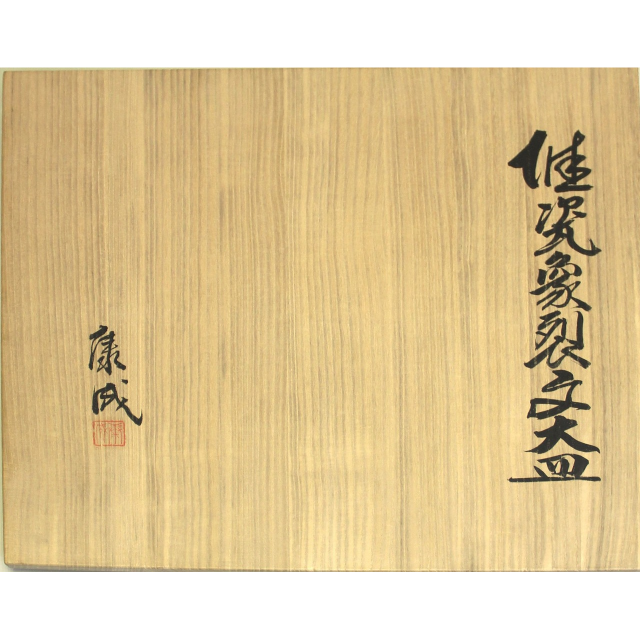 佳瓷象裂文大皿
康成